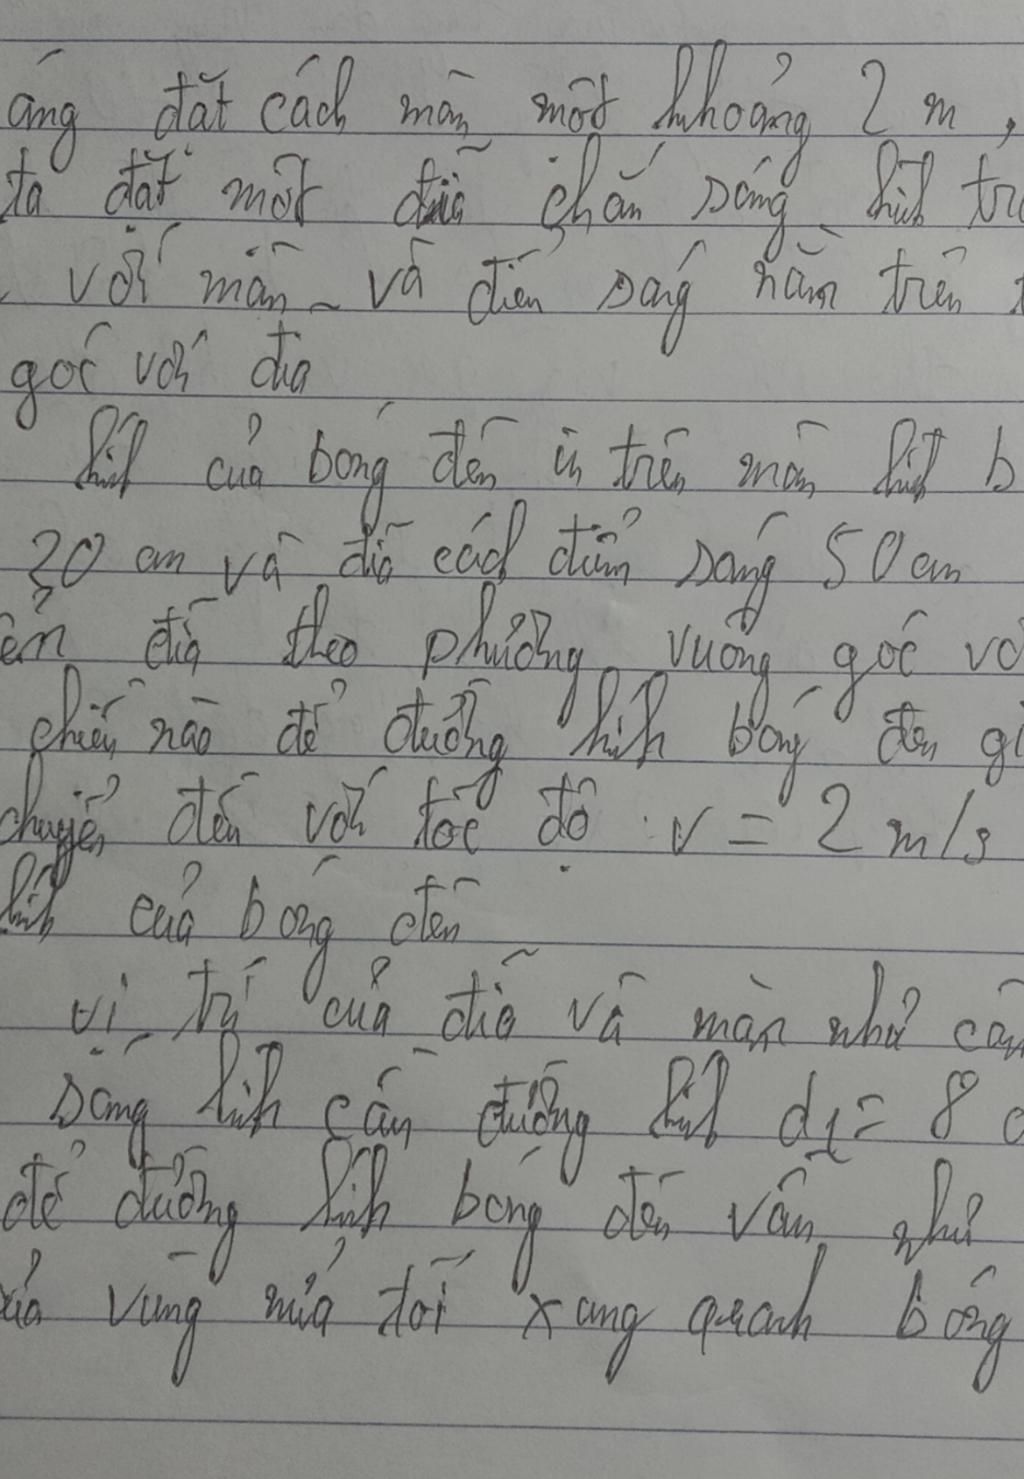 áng đặt cách màn một khoảng 2 m,
ta đặt một đĩa chắn sáng hình
với màn và điểm sáng nằm trên
góc với đĩa
kính của bóng đen in trên màn
20 cm và đĩa cách điểm sáng 50 cm
đĩa theo phương vuông góc
chiều nào để đường kính bóng đen
chuyển đến với tốc độ v = 2 m/s
kính của bóng đen
vị trí của đĩa và màn như
sáng hình cầu đường kính d1 = 8
để đường kính bóng đen vẫn như
vùng nửa tối xung quanh bóng